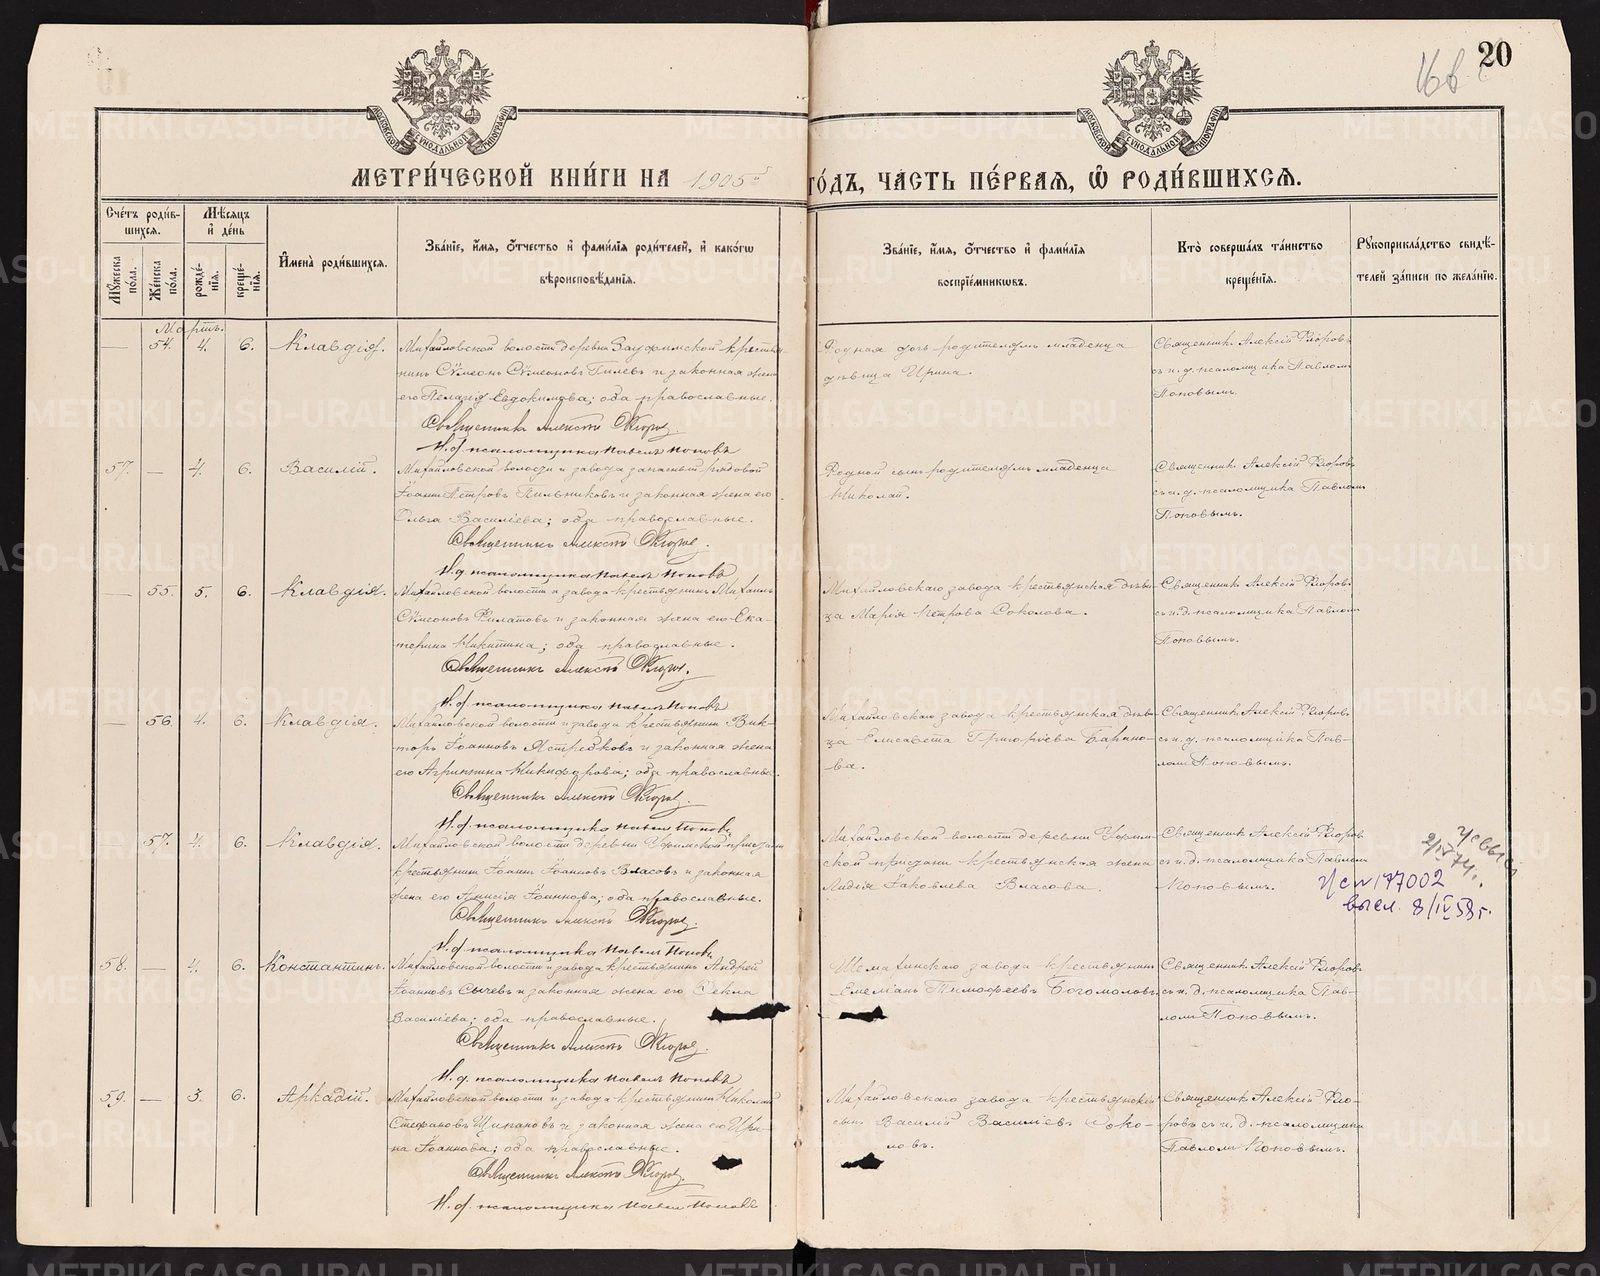 20
МОСКОВСКОЙ СѴНОДАЛЬНОЙ ТИПОГРАФІИ
МОСКОВСКОЙ СѴНОДАЛЬНОЙ ТИПОГРАФІИ
МЕТРИ́ЧЕСКОЙ КНИ́ГИ НА 1905й ГО́ДЪ, ЧА́СТЬ ПЕ́РВАЯ, Ѡ РОДИ́ВШИХСЯ.
Сче́тъ роди́в-
шихся.
Мѣ́сяцъ
и҆ де́нь
Мꙋ́жеска по́ла.
Же́нска по́ла.
рожде́-
нїя.
креще́-
нїя.
И҆мена̀ роди́вшихся.
Зва́нїе, и҆́мя, ѻ҆́тчество и҆ фами́лїя роди́телей, и҆ како́гѡ
вѣроисповѣ́данїя.
Зва́нїе, и҆́мя, ѻ҆́тчество и҆ фами́лїя
воспрїе́мникѡвъ.
Кто̀ соверша́лъ та́инство
креще́нїя.
Рꙋкоприкла́дство свидѣ́-
телей за́писи по жела́нїю.
Мартъ.
— 54. 4. 6. Клавдія.
Михайловской волости деревни Зауфимской крестья-
нинъ Сѵмеонъ Сѵмеоновъ Гилевъ и законная жена
его Пелагія Евдокимова; оба православные.
Священникъ Алексій Флоровъ
И. д. псаломщика Павелъ Поповъ
Родная дочь родителямъ младенца
дѣвица Ирина.
Священникъ Алексій Флоровъ
съ и. д. псаломщика Павломъ
Поповымъ.
57. — 4. 6. Василій.
Михайловской волости и завода запасный рядовой
Іоаннъ Петровъ Пильниковъ и законная жена его
Ольга Василіева; оба православные.
Священникъ Алексій Флоровъ
И. д. псаломщика Павелъ Поповъ
Родной сынъ родителямъ младенца
Николай.
Священникъ Алексій Флоровъ
съ и. д. псаломщика Павломъ
Поповымъ.
— 55. 5. 6. Клавдія.
Михайловской волости и завода крестьянинъ Михаилъ
Сѵмеоновъ Филатовъ и законная жена его Ека-
терина Никитина; оба православные.
Священникъ Алексій Флоровъ
И. д. псаломщика Павелъ Поповъ
Михайловскаго завода крестьянская дѣви-
ца Марія Петрова Соколова.
Священникъ Алексій Флоровъ
съ и. д. псаломщика Павломъ
Поповымъ.
— 56. 4. 6. Клавдія.
Михайловской волости и завода крестьянинъ Вик-
торъ Іоанновъ Ястребковъ и законная жена
его Агриппина Никифорова; оба православные.
Священникъ Алексій Флоровъ
И. д. псаломщика Павелъ Поповъ
Михайловскаго завода крестьянская дѣви-
ца Елисавета Григоріева Барино-
ва.
Священникъ Алексій Флоровъ
съ и. д. псаломщика Пав-
ломъ Поповымъ.
57. 4. 6. Клавдія.
Михайловской волости деревни Уфимской пристани
крестьянинъ Іоаннъ Іоанновъ Власовъ и законная
жена его Анисія Іоаннова; оба православные.
Священникъ Алексій Флоровъ
И. д. псаломщика Павелъ Поповъ
Михайловской волости деревни Уфим-
ской пристани крестьянская жена
Лидія Іаковлева Власова.
Священникъ Алексій Флоровъ
съ и. д. псаломщика Павломъ
Поповымъ.
177002
высл. 8/IV 58 г.
58. — 4. 6. Константинъ.
Михайловской волости и завода крестьянинъ Андрей
Іоанновъ Сычевъ и законная жена его Ѳекла
Василіева; оба православные.
Священникъ Алексій Флоровъ
И. д. псаломщика Павелъ Поповъ
Шемахинскаго завода крестьянинъ
Емеліанъ Тимоѳеевъ Богомоловъ.
Священникъ Алексій Флоровъ
съ и. д. псаломщика Пав-
ломъ Поповымъ.
59. — 3. 6. Аркадій.
Михайловской волости и завода крестьянинъ Николай
Стефановъ Щипановъ и законная жена его Ири-
на Іоаннова; оба православные.
Священникъ Алексій Флоровъ
И. д. псаломщика Павелъ Поповъ
Михайловскаго завода крестьянскій
сынъ Василій Василіевъ Соко-
ловъ.
Священникъ Алексій Фло-
ровъ съ и. д. псаломщика
Павломъ Поповымъ.
METRIKI.GASO-URAL.RU